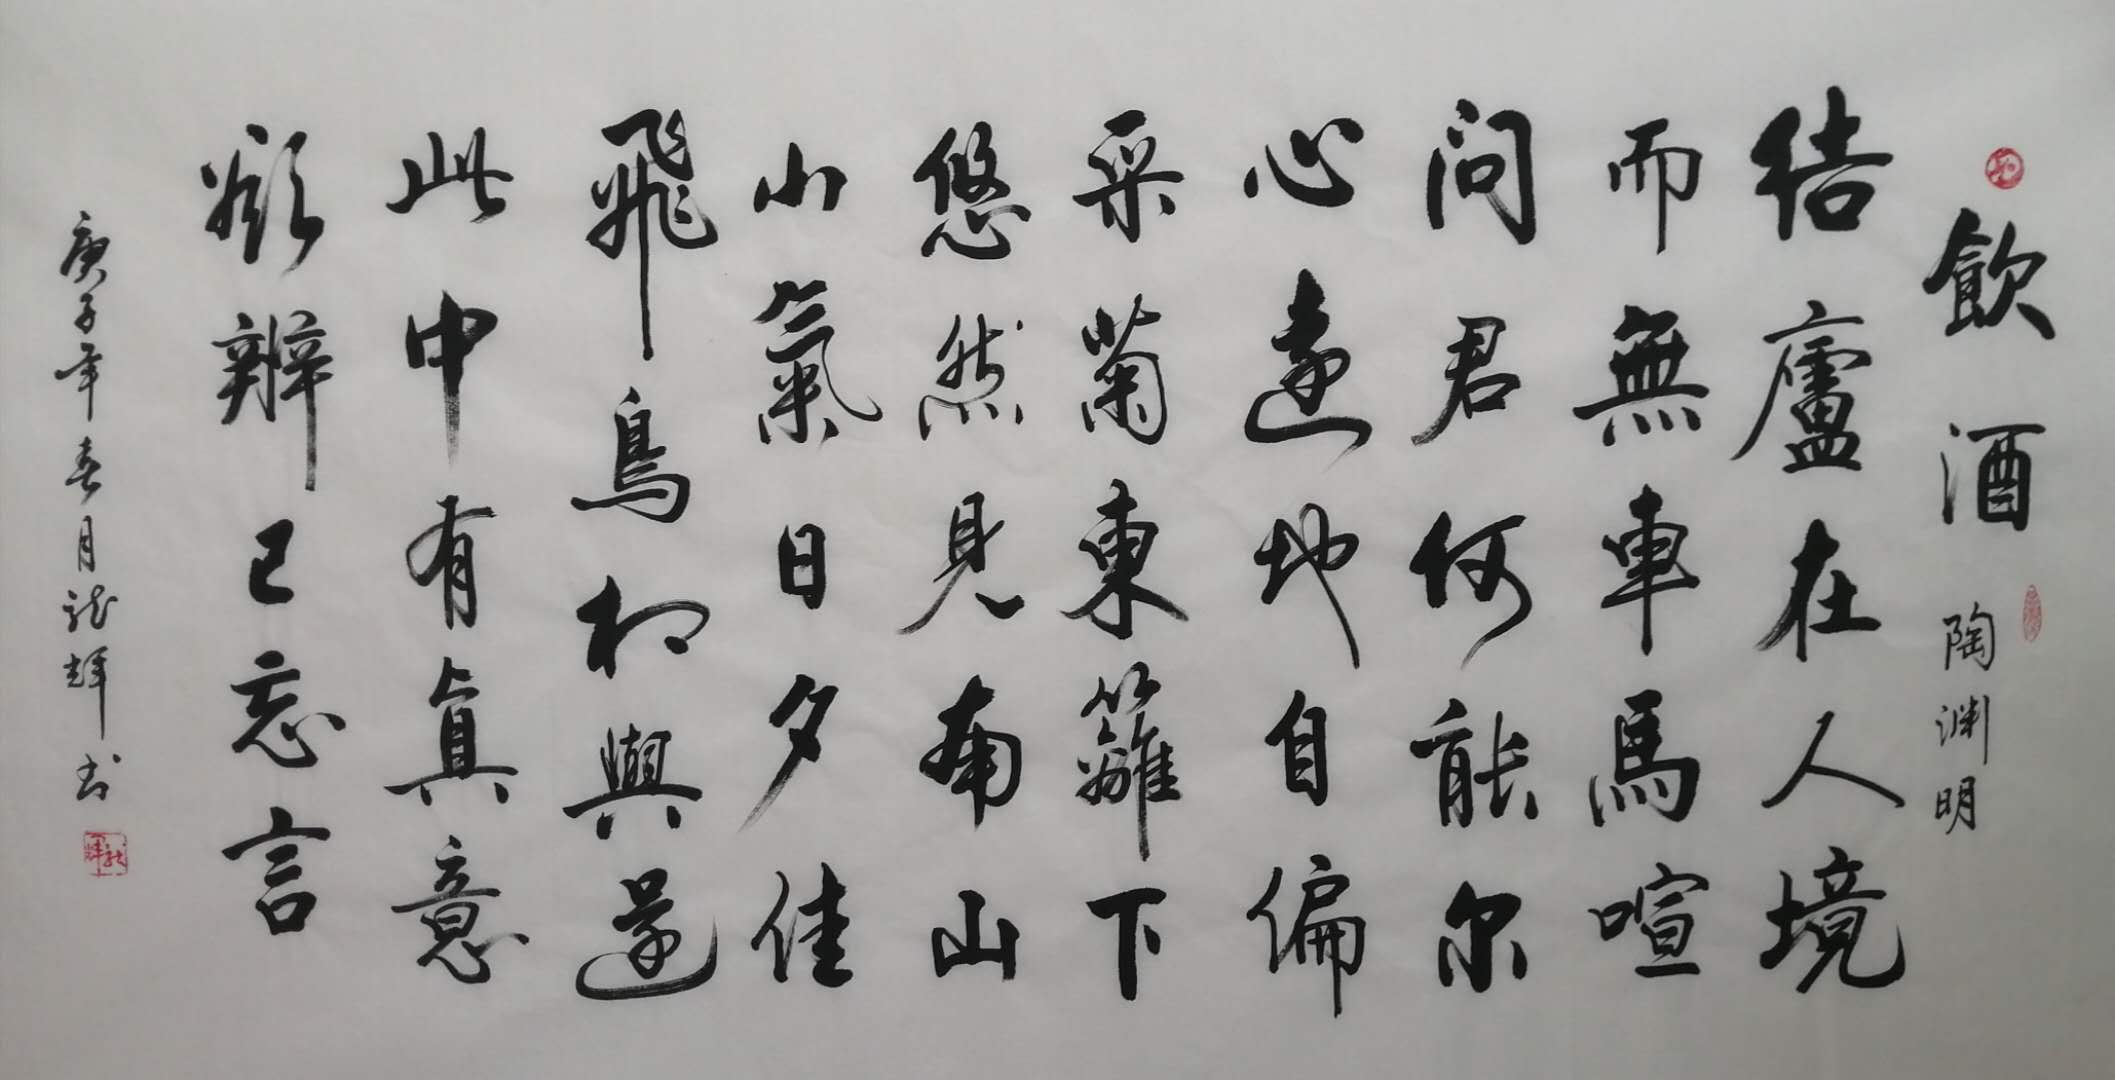 飲酒 陶渊明
結廬在人境
而無車馬喧
问君何能尔
心遠地自偏
采菊東籬下
悠然見南山
山氣日夕佳
飛鳥相與還
此中有真意
欲辨已忘言
庚子年春月龙辉书